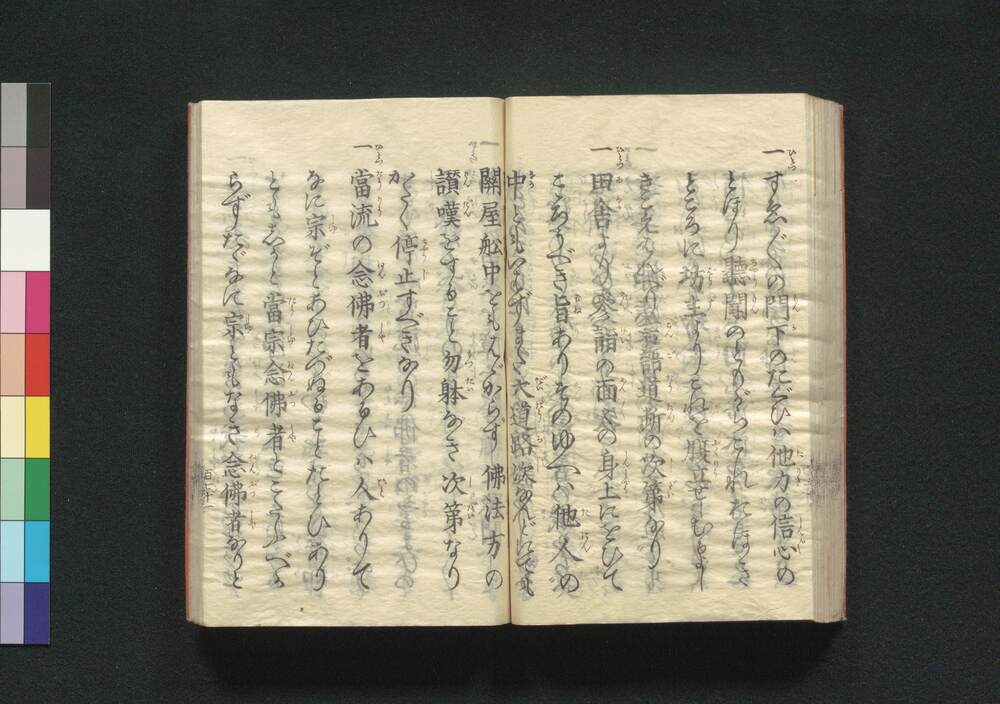 一すゑ〴〵の門下のたぐひハ他力の信心の
とほり聽聞のともがらこれおほき
ところに坊主よりこれを腹立せしむるよし
きこえたり言語道斷の次第なり
一田舍より參詣の面々の身上にをひて
こゝろうべき旨ありそのゆへハ他人の
中ともいはずまた大道路次なんどにても
關屋舩中をもはゞからず佛法方の
讃嘆をすること勿躰なき次第なり
かたく停止すべきなり
一當流の念佛者をあるひハ人ありて
なに宗ぞとあひたづぬることたとひあり
ともしかと當宗念佛者とこたふべか
らずたゞなに宗ともなき念佛者なりと